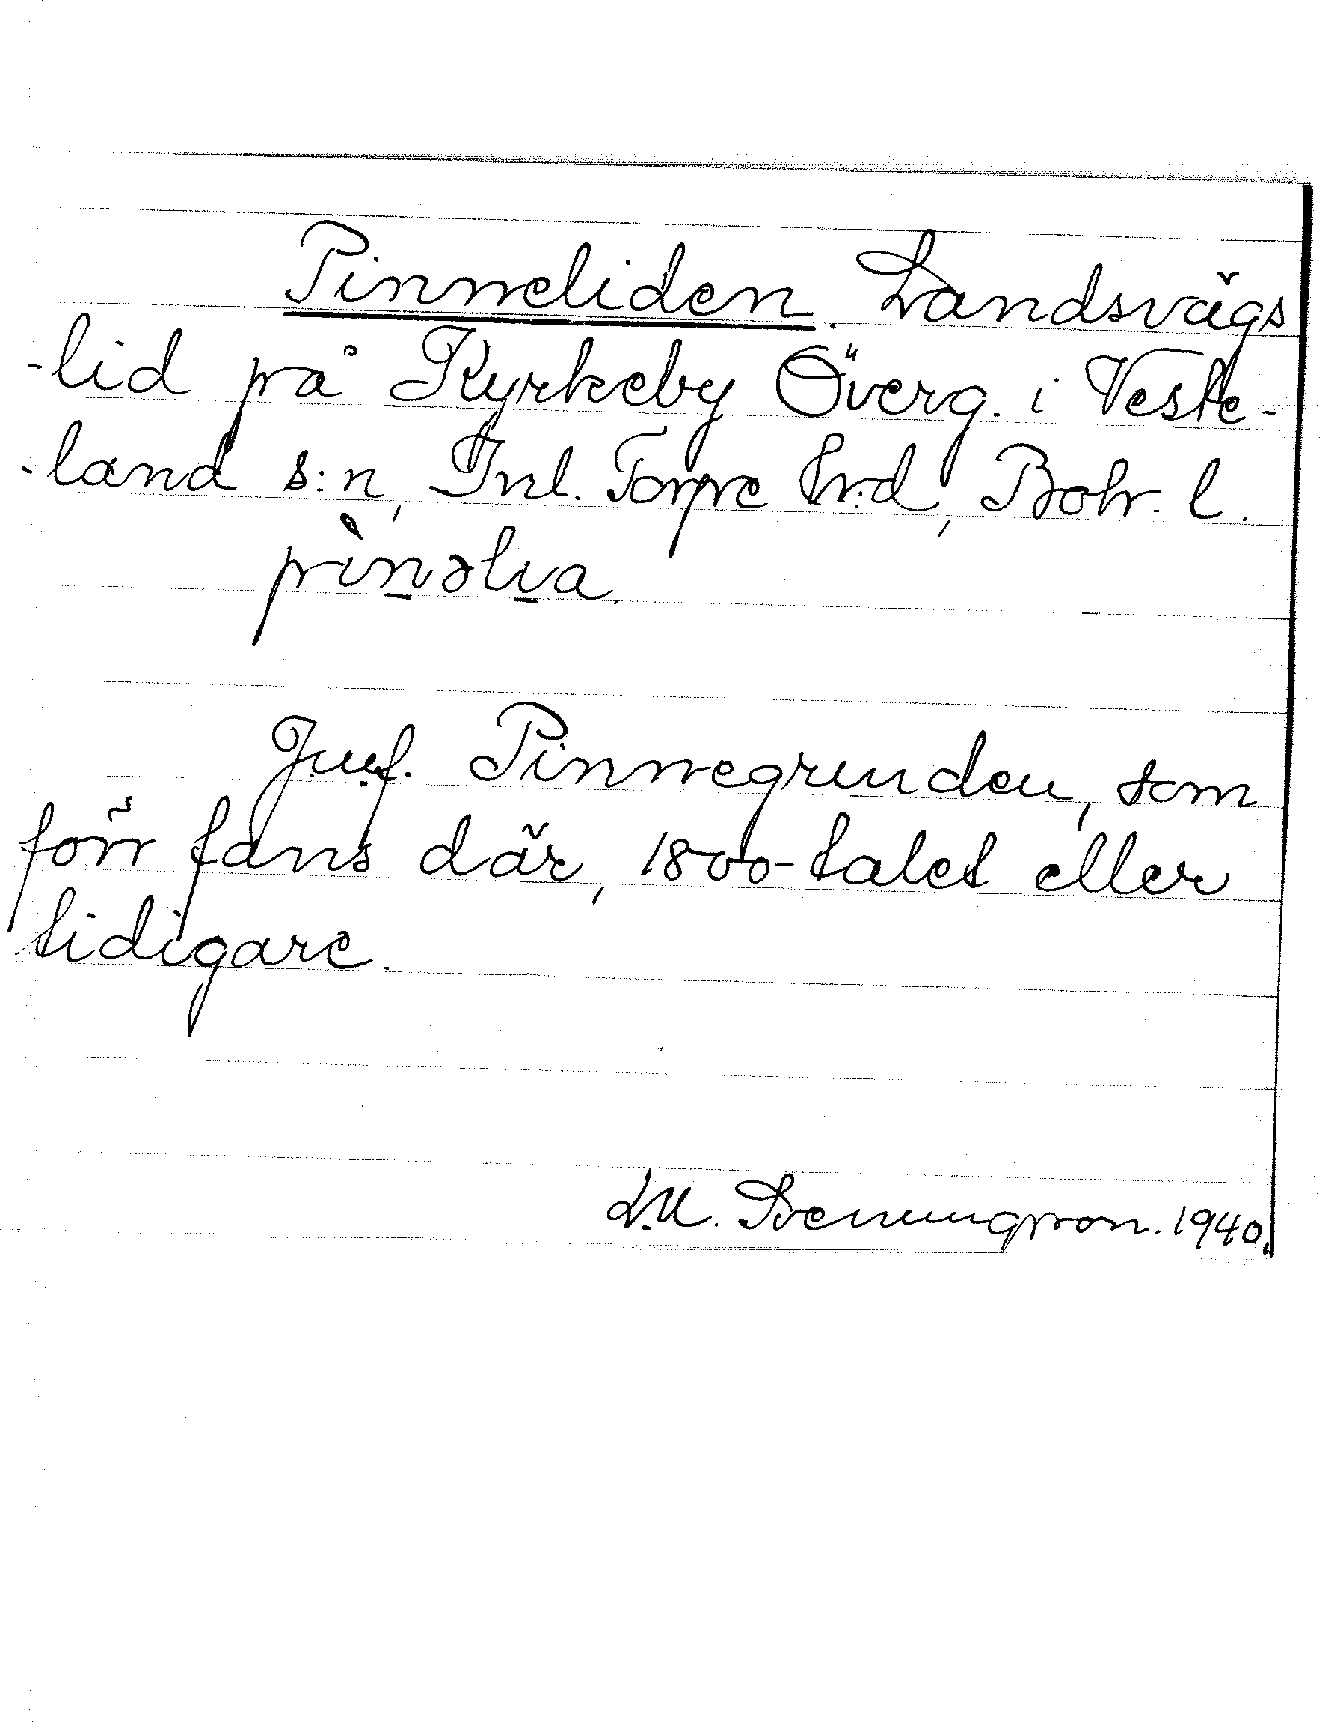 Pinneliden. Landsvägs
-lid på Kyrkeby Överg. i Veste-
-land s:n, Inl. Torpe hrd, Boh. l.
pìnəlia.
Jmf. Pinnegrinden, som
förr fans där, 1800-talet eller
tidigare.
L.M. Svenungsson. 1940.